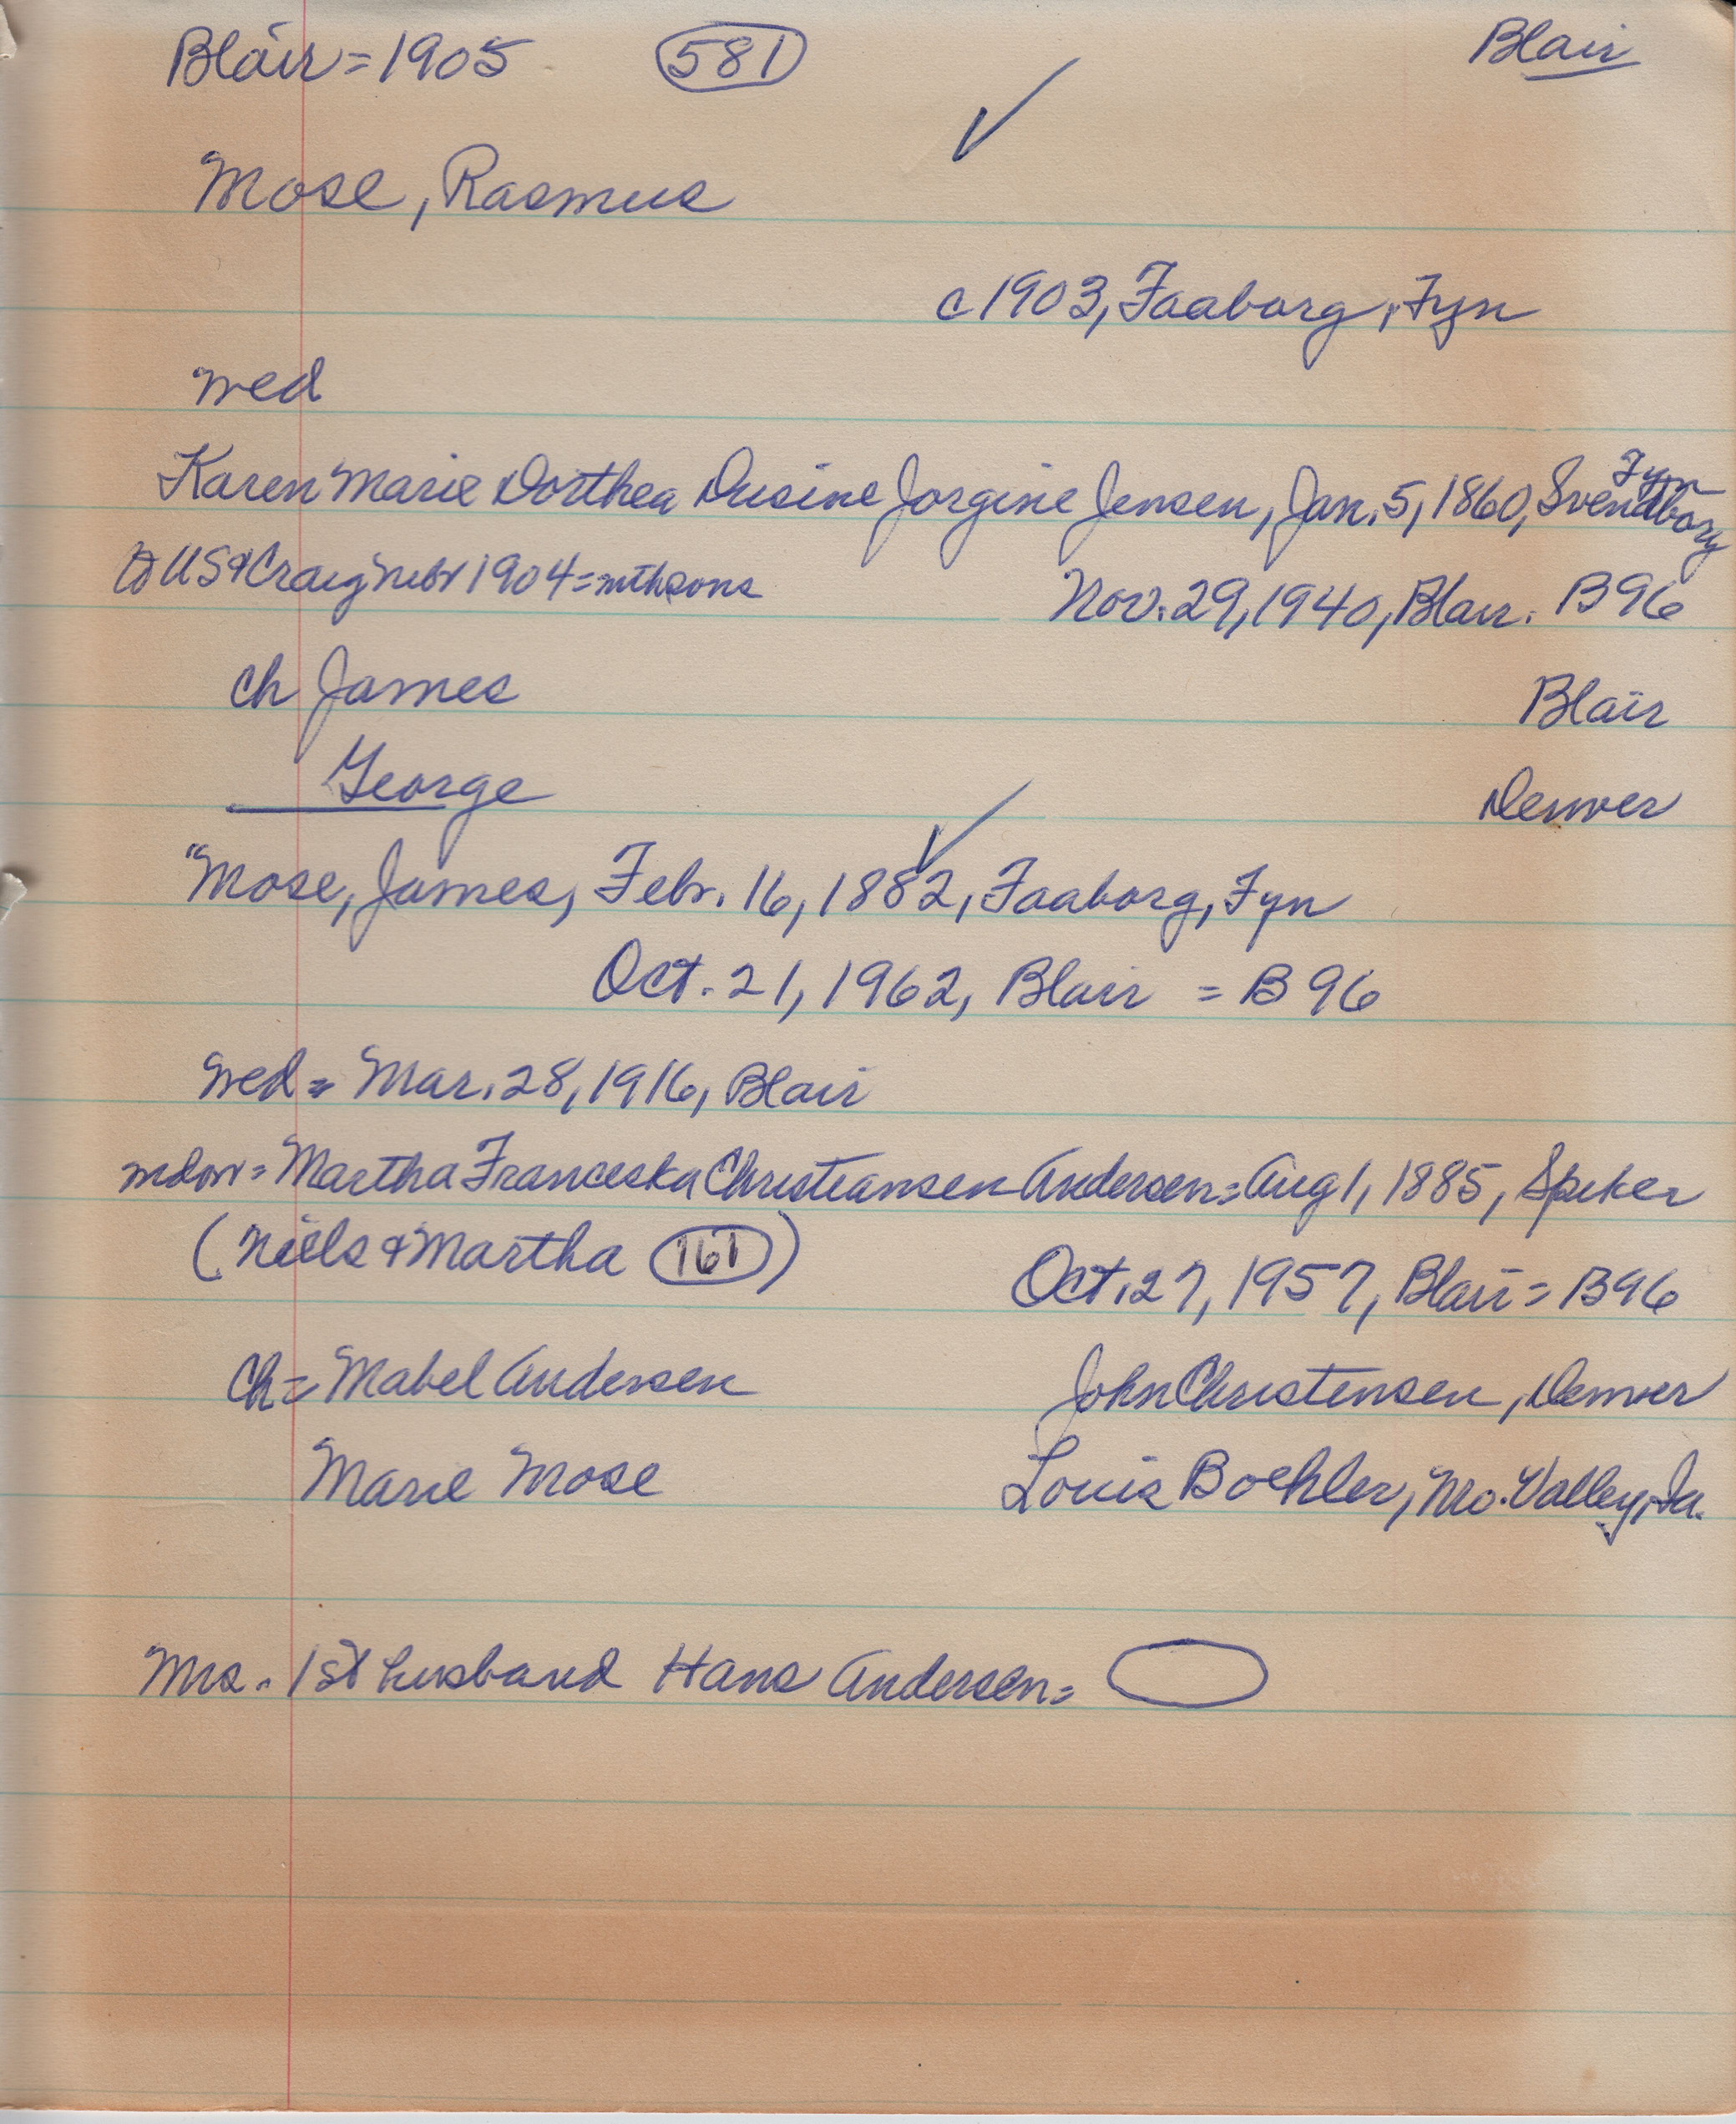 Blair = 1905 581 Blair
Mose, Rasmus
c 1903, Faaborg, Fyn
wed
Karen Marie Dorthea Dusine Jorgine Jensen, Jan. 5, 1860, Svendborg Fyn
to US & Craig Nebr 1904 = wth sons Nov. 29, 1940, Blair. B96
ch James Blair
George Denver
"Mose, James, Febr. 16, 1882, Faaborg, Fyn
Oct. 21, 1962, Blair = B 96
wed = Mar. 28, 1916, Blair
wdow = Martha Franceska Christiansen Andersen = Aug 1, 1885, Spiker
(Niels & Martha 161) Oct. 27, 1957, Blair = B96
Ch = Mabel Andersen John Christensen, Denver
Marie Mose Louis Boehler, Mo. Valley, Ia.
Mrs. 1st husband Hans Andersen =